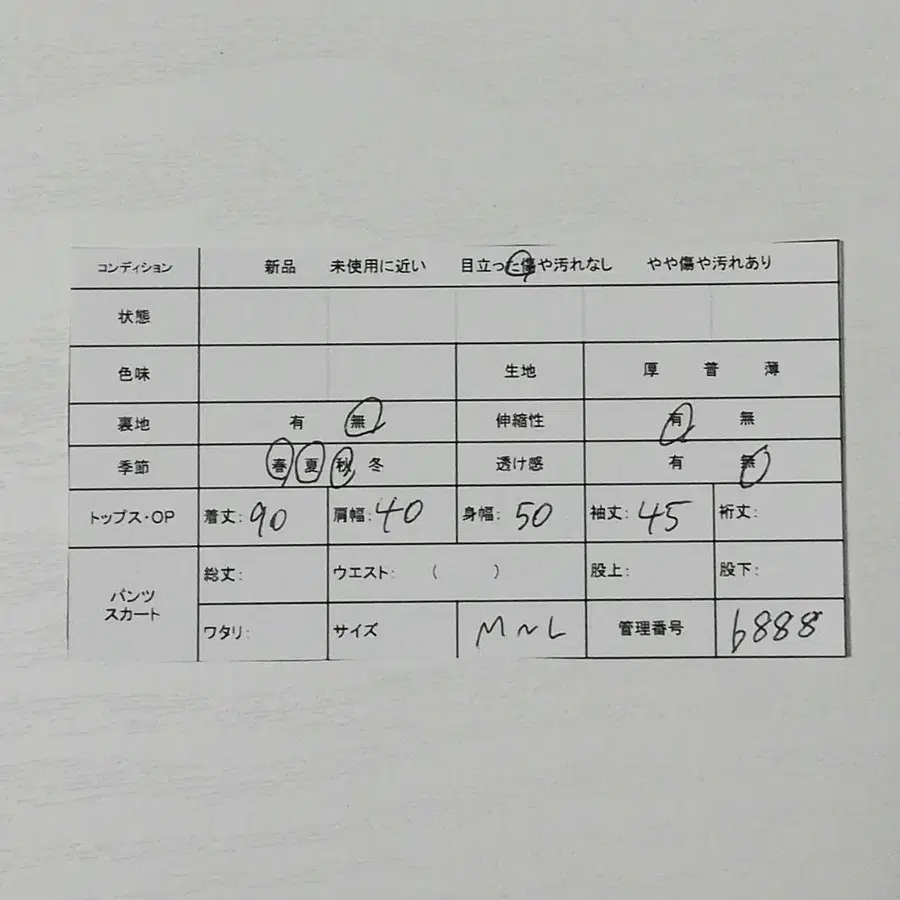 コンディション 新品 未使用に近い 目立った傷や汚れなし やや傷や汚れあり
状態
色味 生地 厚 普 薄
裏地 有 無 伸縮性 有 無
季節 春 夏 秋 冬 透け感 有 無
トップス・OP 着丈:90 肩幅:40 身幅:50 袖丈:45 裄丈:
パンツ
スカート
総丈: ウエスト: ( ) 股上: 股下:
ワタリ: サイズ M~L 管理番号 6888